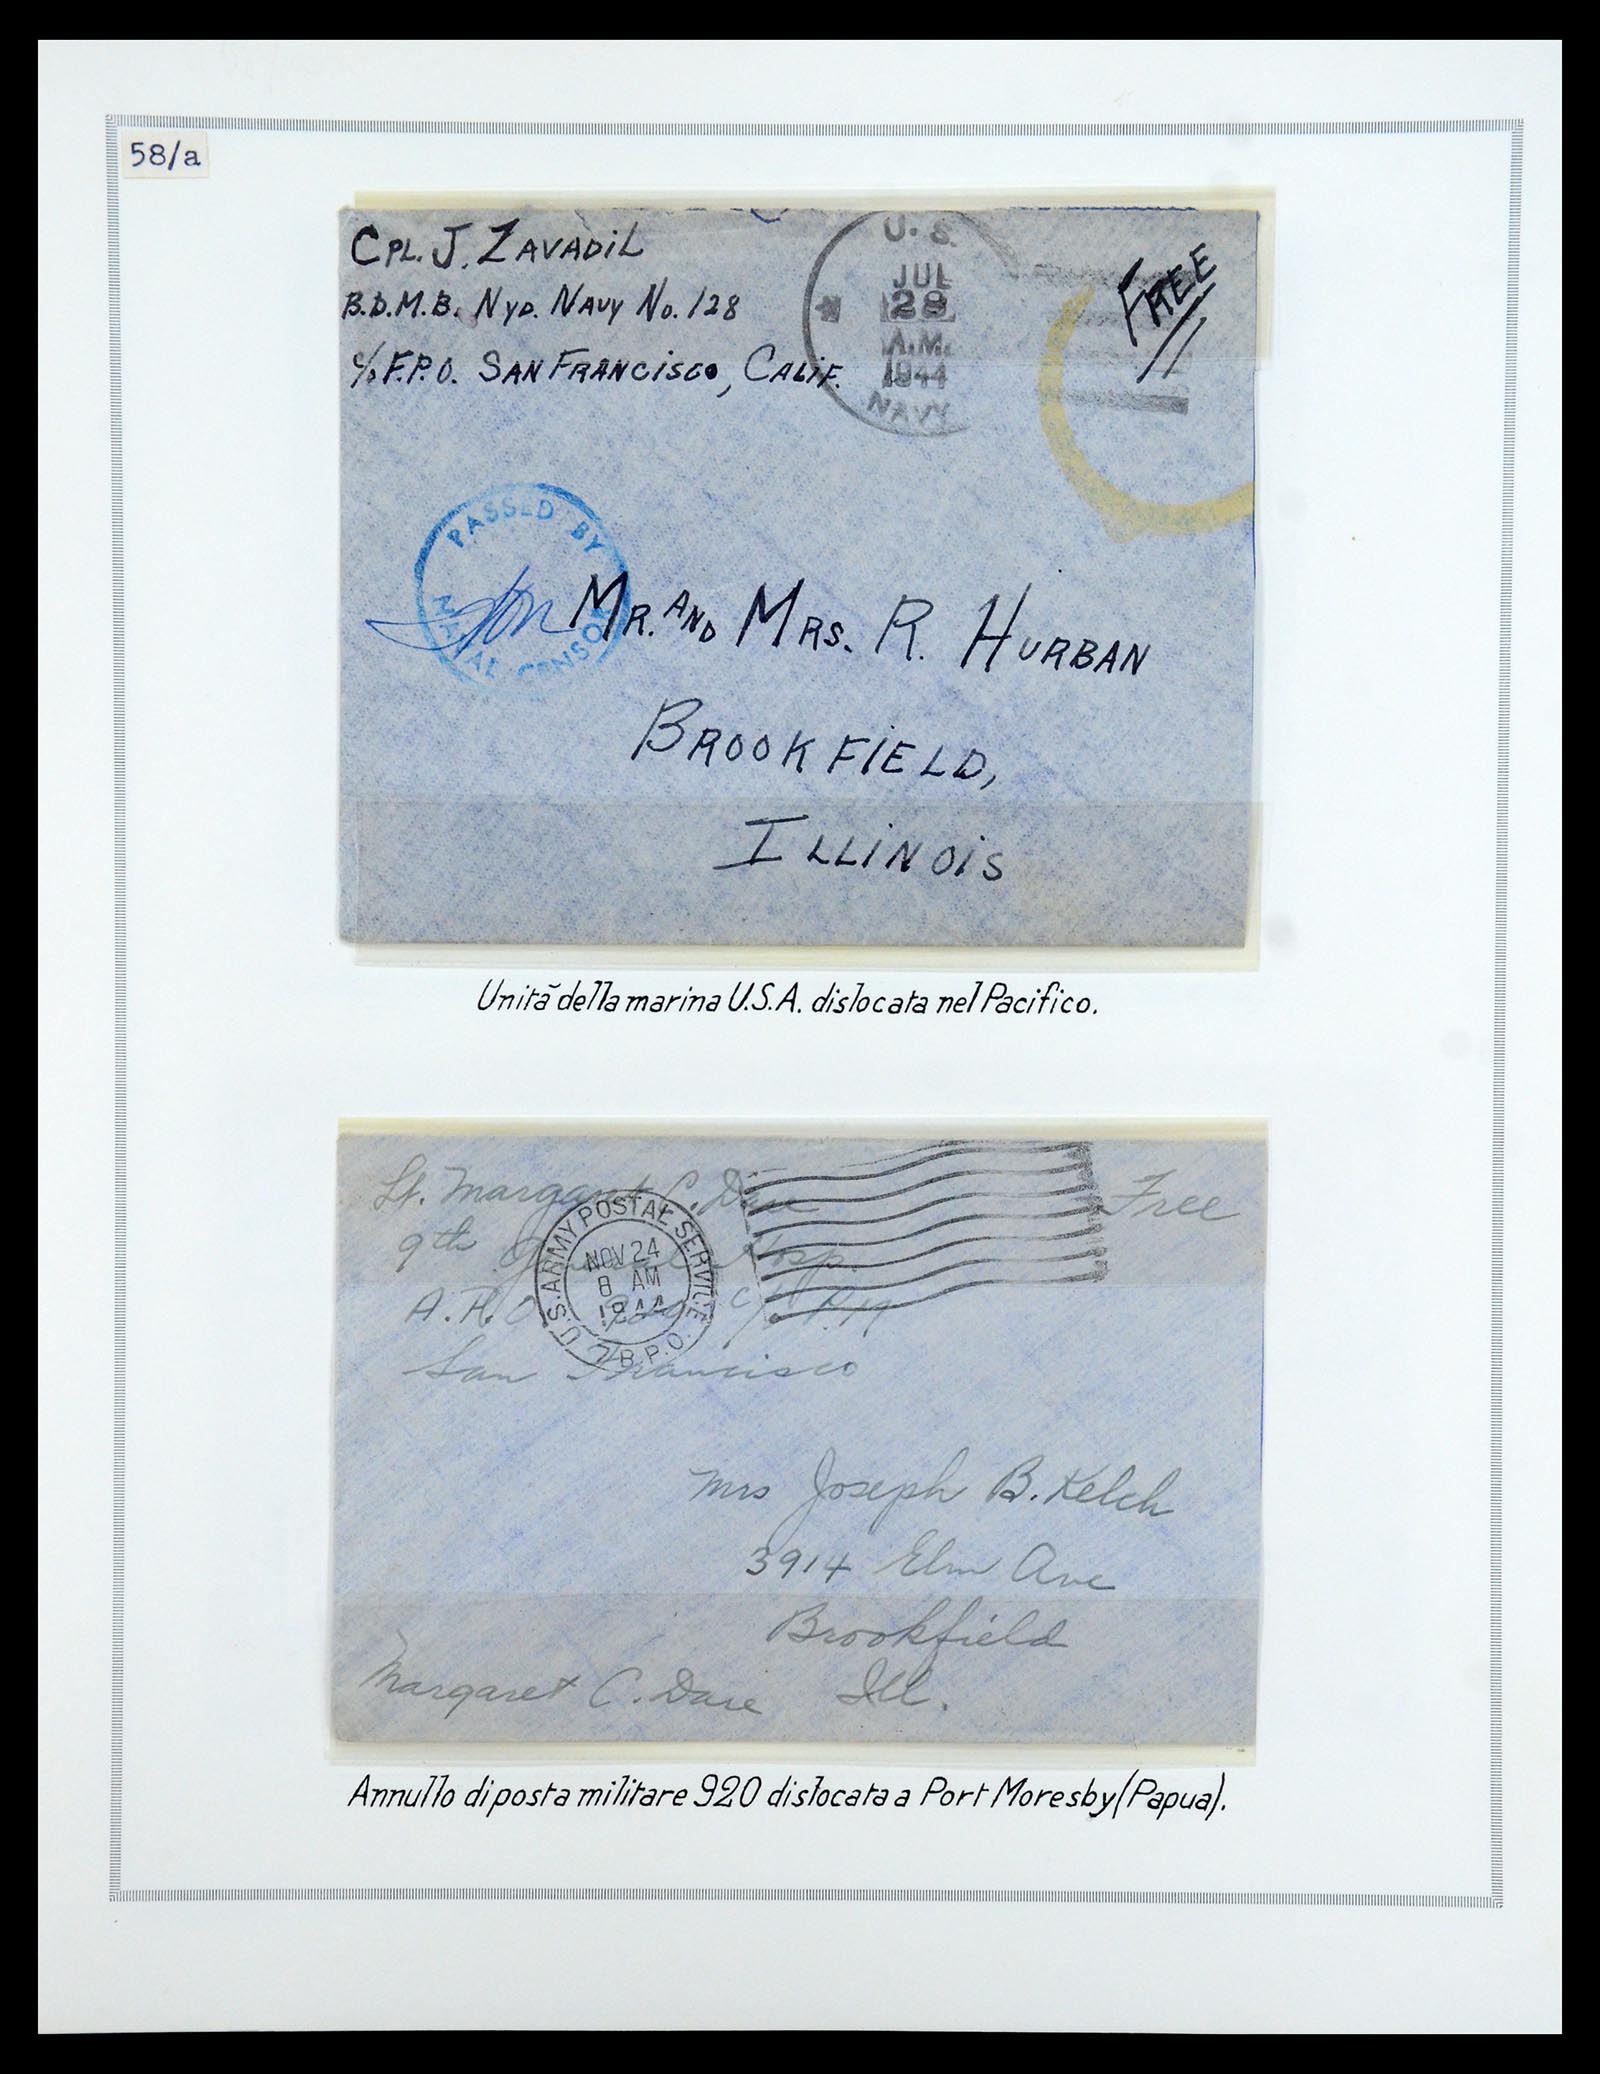 58/a
CPL. J. ZAVADIL
B.D.M.B. NYD. NAVY NO. 128
c/o F.P.O. SAN FRANCISCO, CALIF.
U. S.
JUL
28
A.M.
1944
NAVY
FREE
PASSED BY
NAVAL CENSOR
MR. AND MRS. R. HURBAN
BROOKFIELD,
ILLINOIS
Unità della marina U.S.A. dislocata nel Pacifico.
Lt. Margaret C. Dare
9th General Hosp.
A.P.O. 920 c/o P.M
San Francisco
U.S. ARMY POSTAL SERVICE
NOV 24
8 AM
1944
B.P.O.
Free
Mrs Joseph B. Kelch
3914 Elm Ave
Brookfield
Ill.
Margaret C. Dare
Annullo di posta militare 920 dislocata a Port Moresby (Papua).